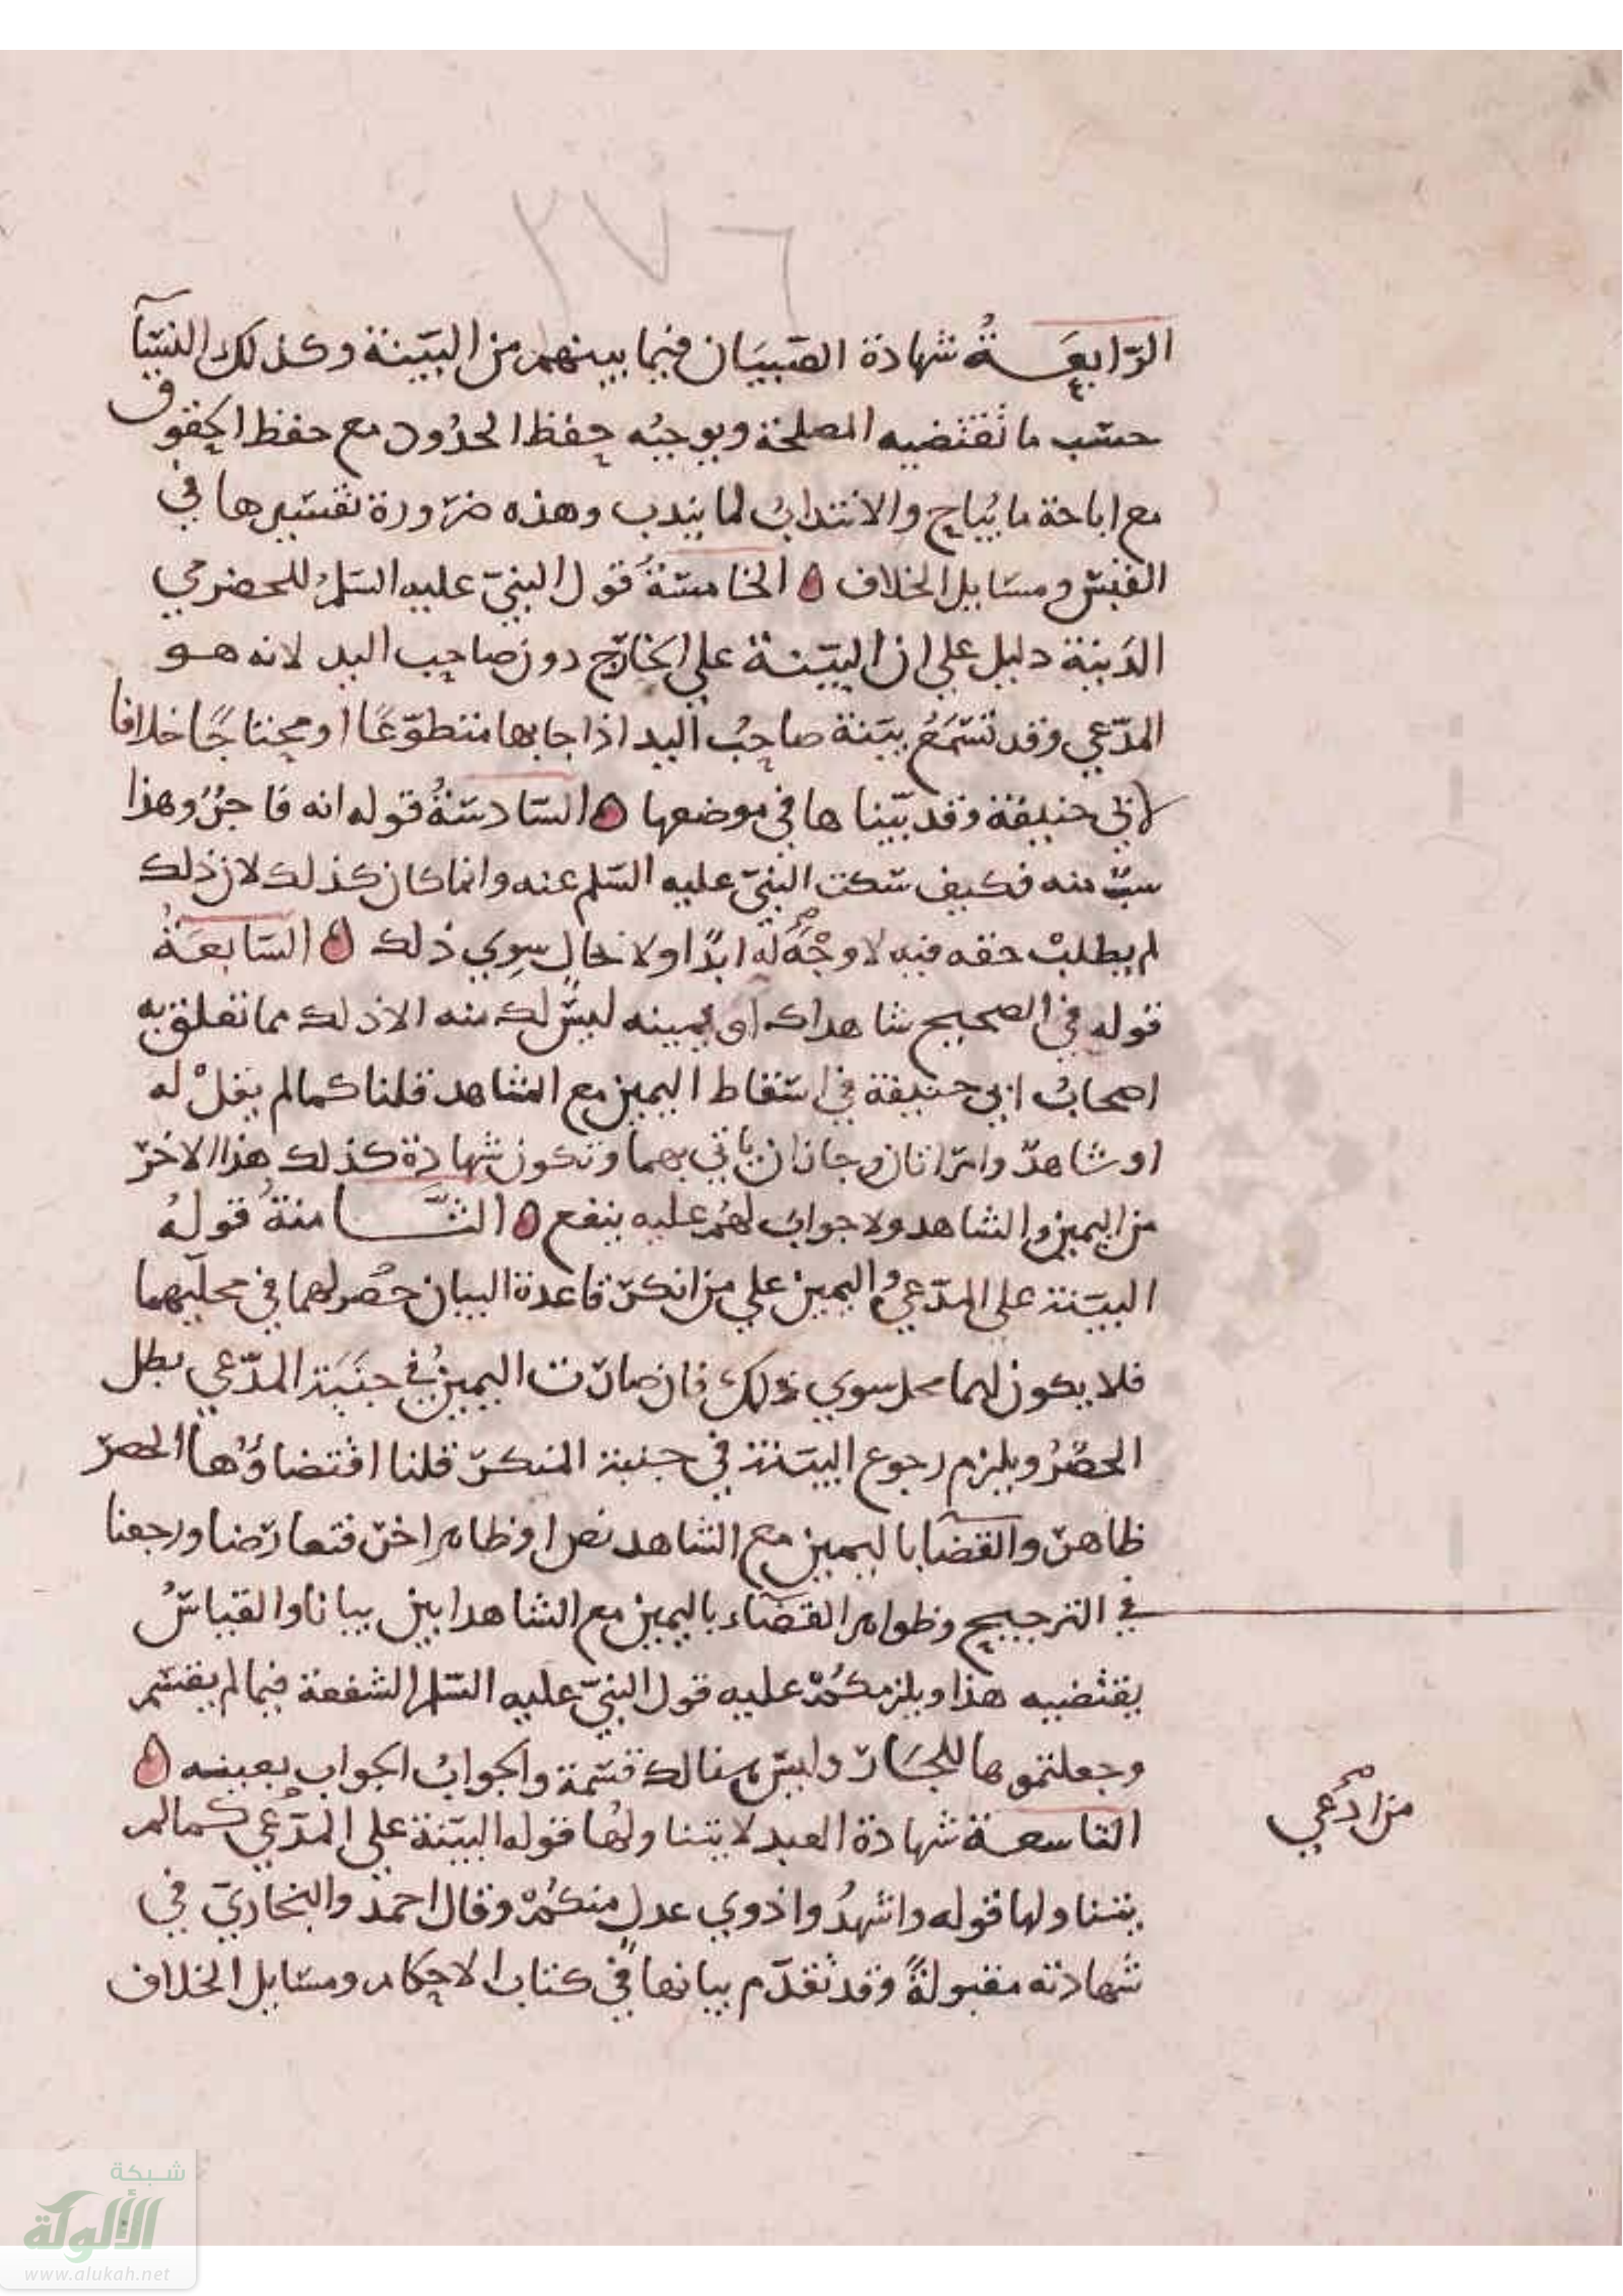 ٢٧٦
الرابعَةُ شهادة الصّبيَان فيما بينهم من البيّنة وكذلك النسآ
حسب ما تقتضيه المصلحة ويوجبُه حفظ الحدُود مع حفظ الحقوق
مع اباحة ما يُباح والانتدابُ لما يندب وهذه ضرورة تفسيرها في
القبس ومسايل الخلاف ه الخامسَةُ قول النبيّ عليه السّلم للحضرمي
البينة دليل علي ان البيّنة علي الخارج دون صاحب اليد لانه هو
المدّعي وقد تسمَعُ بيّنة صاحبُ اليد اذا جا بها متطوّعًا او محتاجًا خلافا
لابي حنيفة وقد بيّنا ها في موضعها ه السّادسَةُ قوله انه فاجرٌ وهذا
سبّ منه فكيف سكت النبيّ عليه السّلم عنه وانما كان كذلك لان ذلك
لم يطلبْ حقه فيه لا وجْهَ لهُ ابدًا ولا بحالٍ سِوي ذلك ه السَابعَةُ
قوله في الصحيح شاهداك او يمينه ليسَ لك منه الا ذلك مما تعلق به
اصحابُ ابي حنيفة في اسقاط اليمين مع الشاهد قلنا كما لم يقلْ له
او شاهدٌ وامراتان وجاز ان ياتي بهما وتكون شهادة كذلك هذا الاخر
من اليمين والشاهد ولا جوابَ لهُم عليه ينفع ه الثَّامنةُ قولهُ
البيّنة علي المدّعي واليمين علي من انكر قاعدة البيان حَصرهما في محليهما
فلا يكون لهما محل سوي ذلك فان صارت اليمينُ في جنَبَة المدّعي بطل
الحصْرُ ويلزم رجوع البيّنة في جنبة المنكر قلنا اقتضاؤُها الحصر
ظاهر والقضايا باليمين مع الشاهد نص او ظاهر اخر فتعارضا ورجعنا
في الترجيح وظواهر القضاء باليمين مع الشاهد ابين بيانا والقياسُ
يقتضيه هذا ويلزمكمْ عليه قول النبيّ عليه السّلم الشفعة فيما لم يقسم
وجعلتموها للجَار وليسَ هنالك قسمة والجوابُ الجواب بعينه ه
التاسعة شهادة العبد لا يتناولُها قوله البيّنة علي المدّعي كما لم
يتناولها قوله واشهدُوا ذوي عدلٍ منكُمْ وقال احمد والبخاري في
شهادته مقبولةً وقد تقدّم بيانها في كتاب الاحكام ومسايل الخلاف
من ادعي
شبكة
الألوكة
www.alukah.net